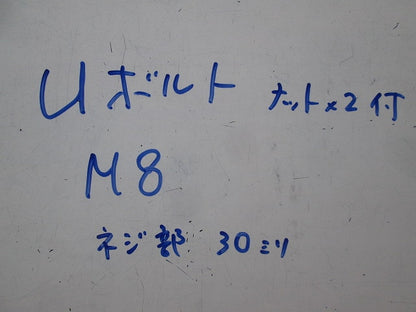 Uボルト ナット×2付
M8
ネジ部 30ミリ